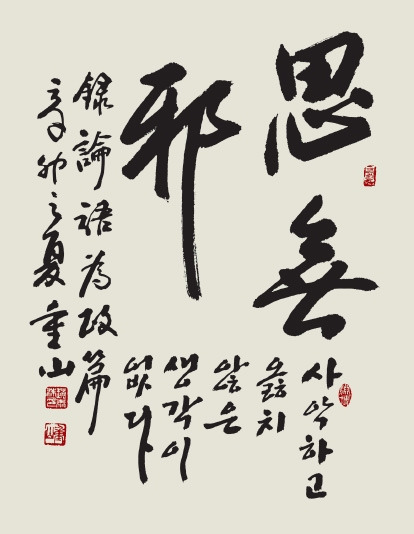 思無
邪
사악하고
옳치
않은
생각이
없다
錄論語為政篇
辛卯之夏重山